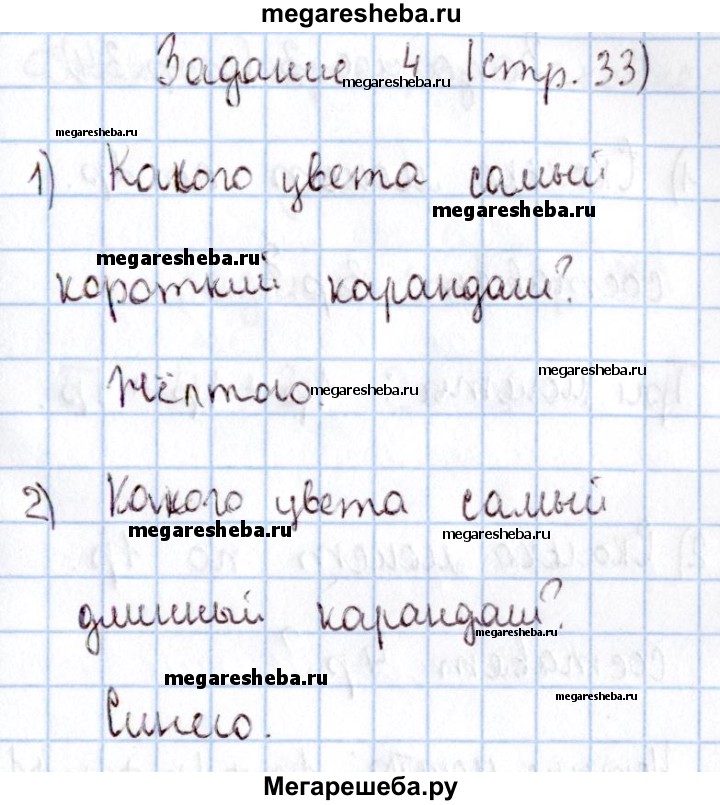 megaresheba.ru
Задание 4 (стр. 33)
megaresheba.ru
megaresheba.ru
1) Какого цвета самый
megaresheba.ru
megaresheba.ru
короткий карандаш?
megaresheba.ru
Жёлтого.
megaresheba.ru
2) Какого цвета самый
megaresheba.ru
megaresheba.ru
длинный карандаш?
megaresheba.ru
megaresheba.ru
megaresheba.ru
Синего.
Мегарешеба.ру